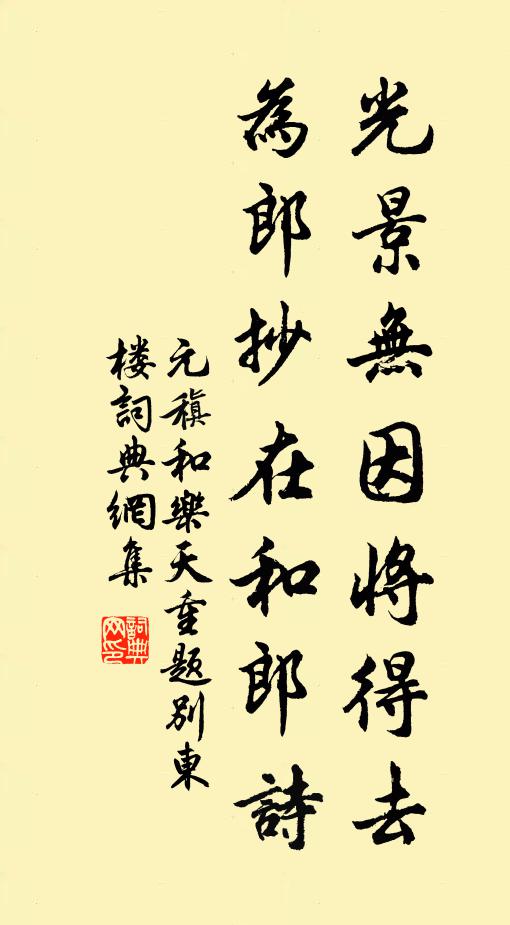 光景無因將得去
為郎抄在和郎詩
元稹和樂天重題別東
楼詞典網集
詞典网印